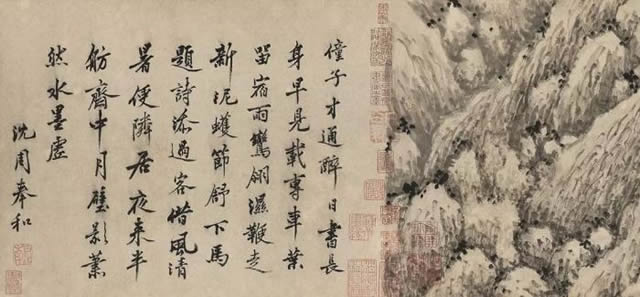 僮子才通醉日書長
身早見載專車葉
留宿雨鸞翎濕鞭走
新泥蠖節舒下馬
題詩添過客借風清
暑便隣居夜来半
舫齋中月壁影蕭
然水墨虛
沈周奉和